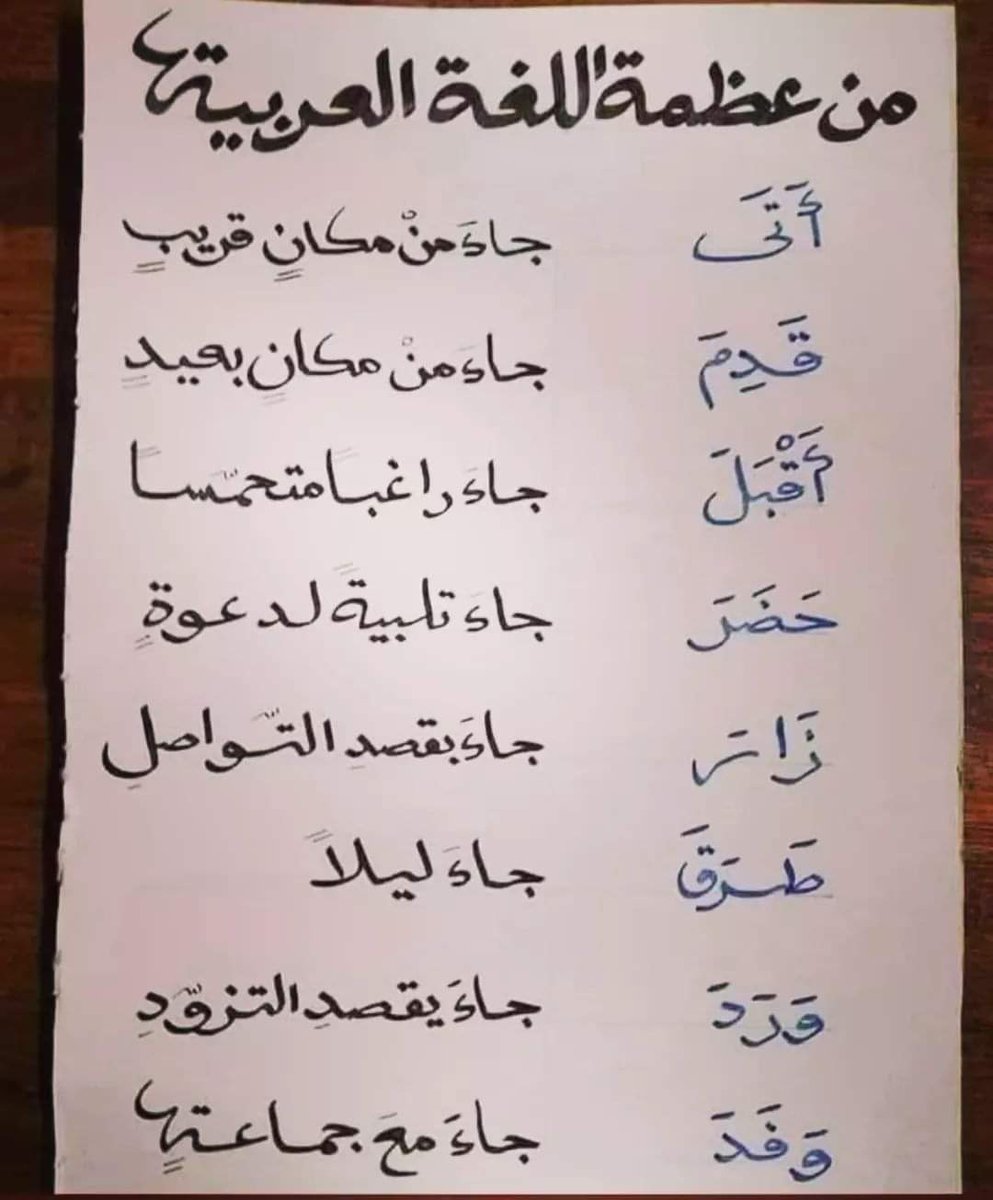 من عظمة اللغة العربية
أَتَى جاءَ منْ مكانٍ قريبٍ
قَدِمَ جاءَ منْ مكانٍ بعيدٍ
أَقْبَلَ جاءَ راغبًا متحمّسًا
حَضَرَ جاءَ تلبيةً لدعوةٍ
زَارَ جاءَ بقصدِ التّواصلِ
طَرَقَ جاءَ ليلاً
وَرَدَ جاءَ يقصدِ التزوّدِ
وَفَدَ جاءَ معَ جماعةٍ